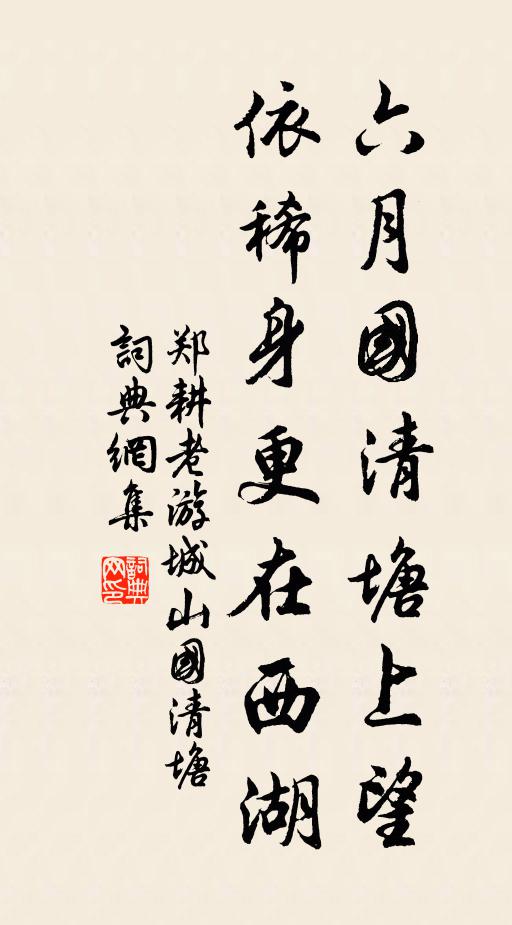 六月國清塘上望
依稀身更在西湖
郑耕老游城山國清塘
詞典網集
詞典网印